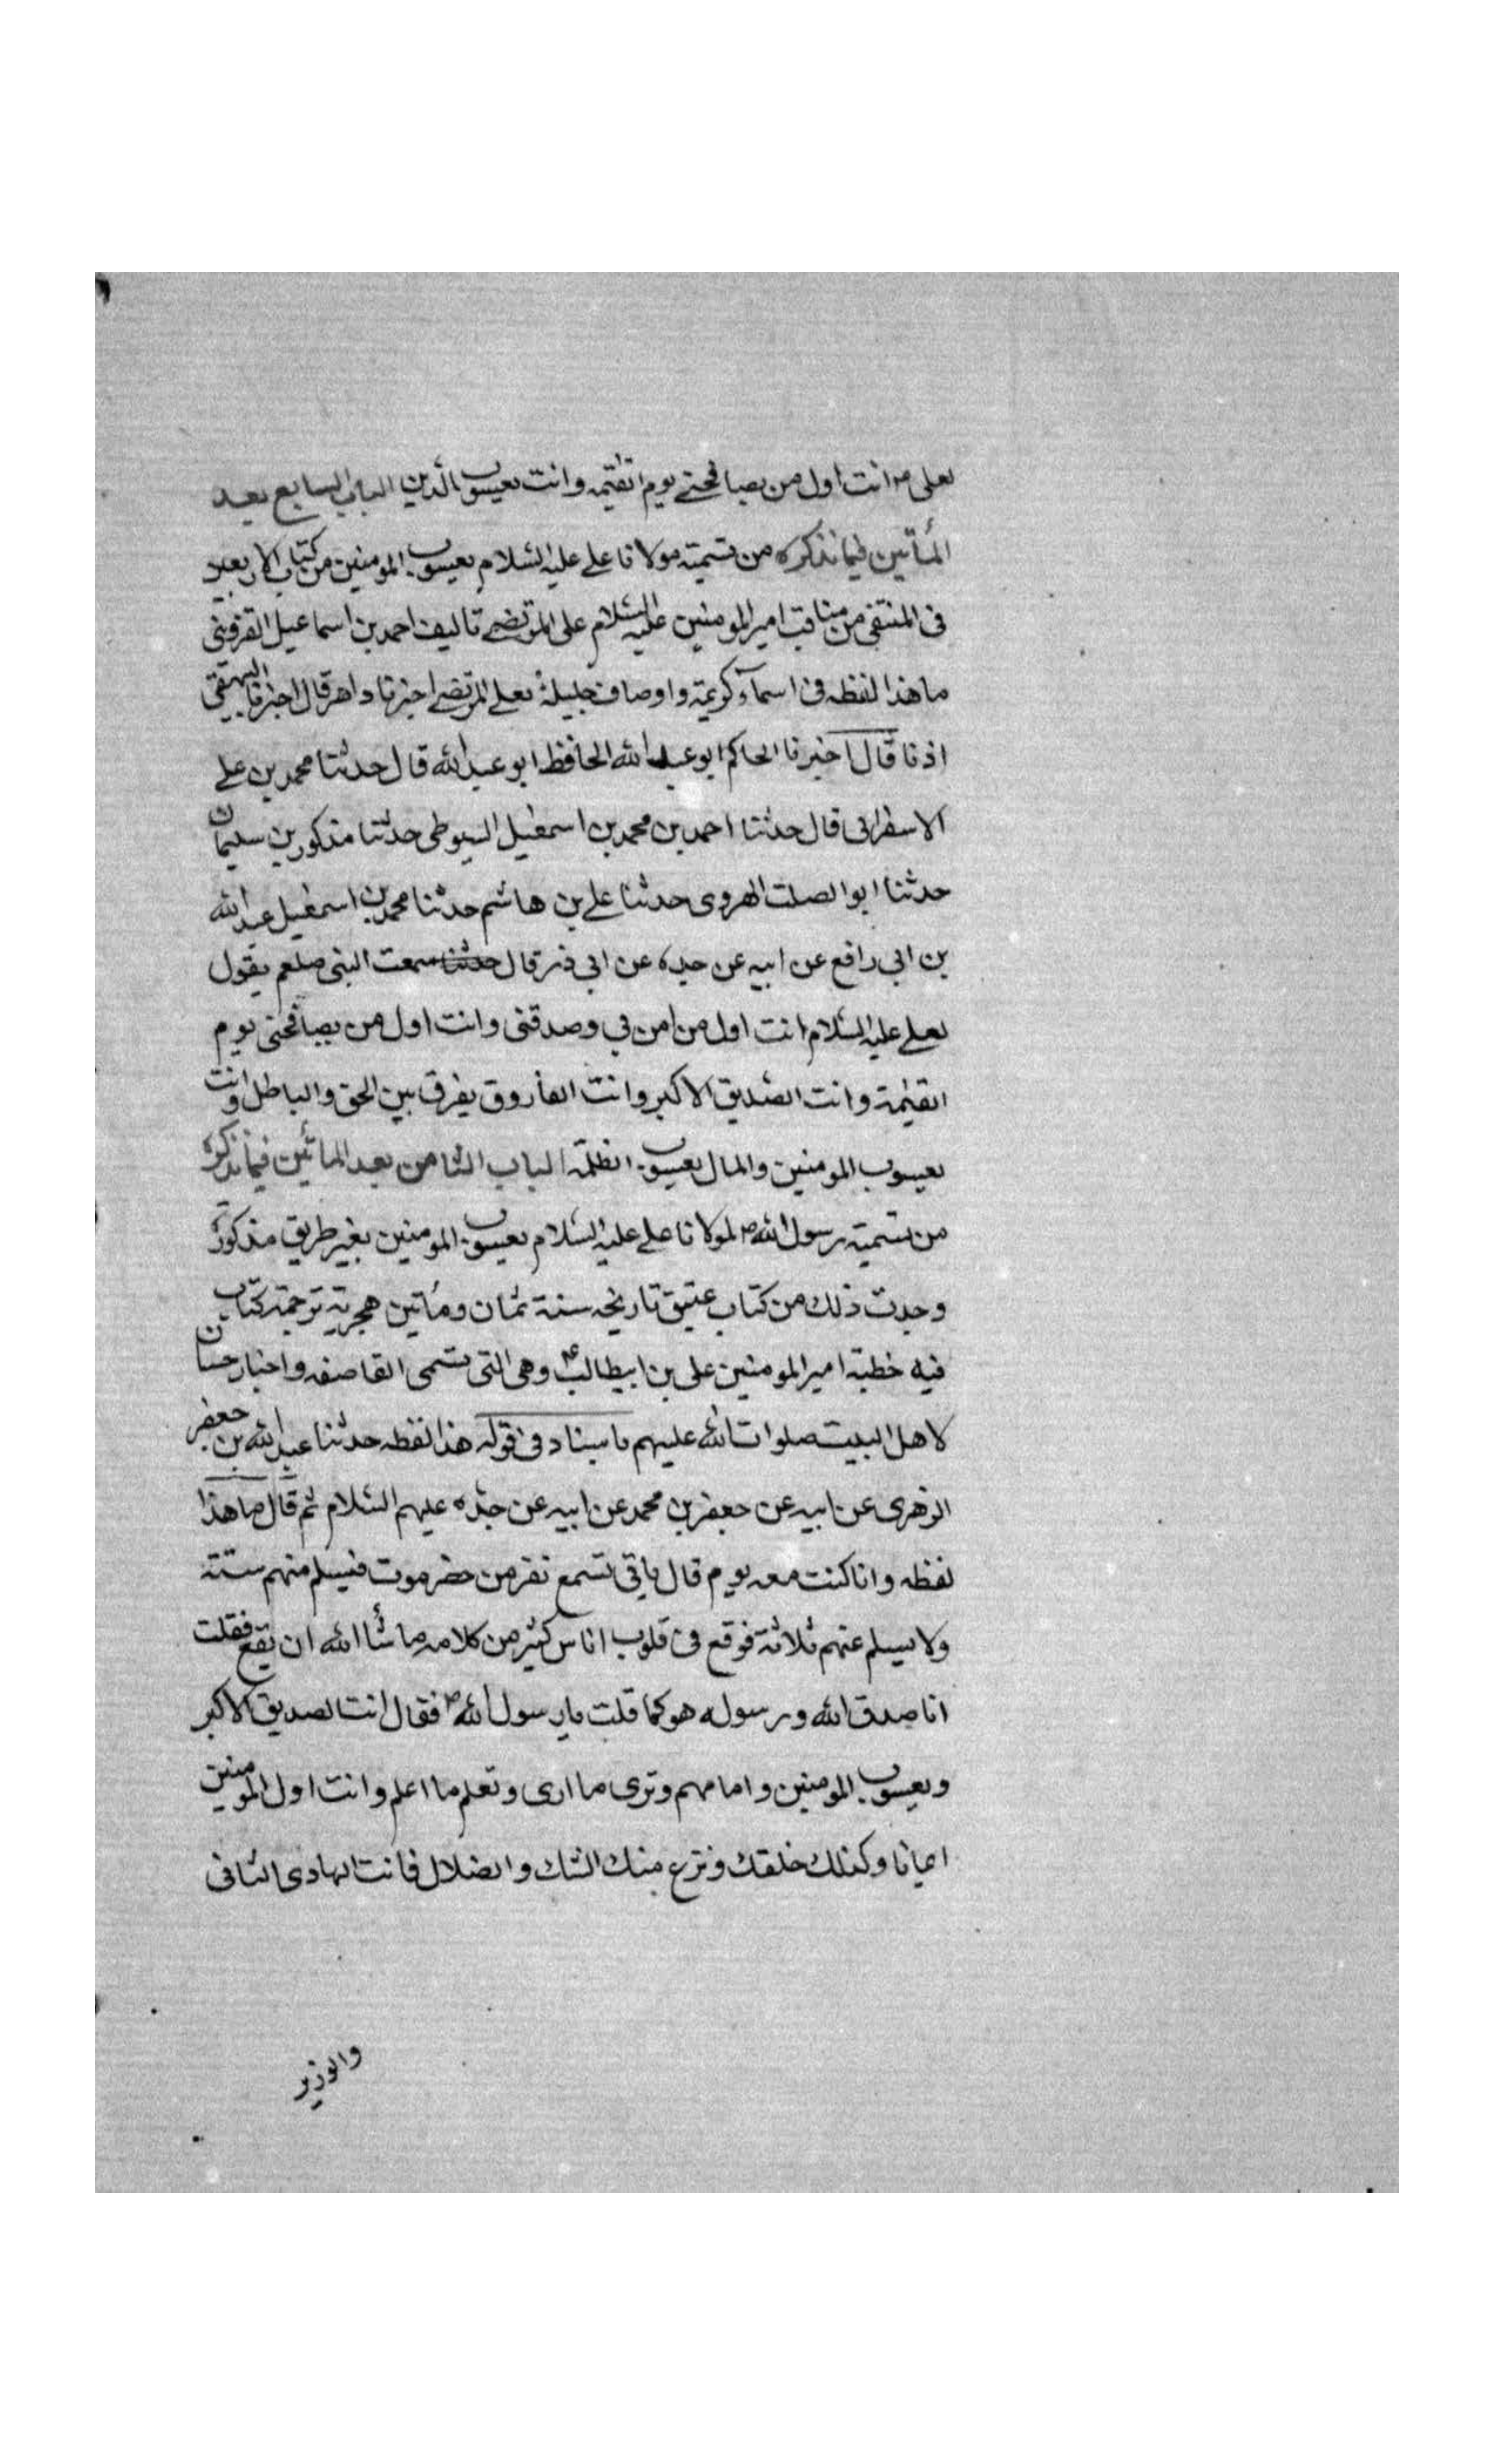 لعلی م انت اول من یصافحنے یوم القیٰمه وانت یعسوب الدین الباب السابع بعد
المأتین فیما نذکره من تسمیته مولانا علے علیه السلام یعسوب المومنین من کتاب الاربعین
فی المنتقی من مناقب امیر المومنین علیه السلام علی المرتضے تالیف احمد بن اسماعیل القزوینی
ما هذا لفظه فی اسمآء کریمة واوصاف جلیلة لعلے المرتضے اخبرنا داهر قال اخبرنا البیهقی
اذنا قال اخبرنا الحاکم ابو عبد الله الحافظ ابو عبد الله قال حدثنا محمد بن علے
الاسفرانی قال حدثنا احمد بن محمد بن اسمعیل السیوطی حدثنا مذکور بن سلیمان
حدثنا ابو الصلت الهروی حدثنا علے بن هاشم حدثنا محمد بن اسمعیل عبد الله
بن ابی رافع عن ابیه عن جده عن ابی ذر قال حدثنا سمعت النبی صلعم یقول
لعلے علیه السلام انت اول من امن بی وصدقنی وانت اول من یصافحنی یوم
القیٰمة وانت الصّدیق الاکبر وانت الفاروق یفرق بین الحق والباطل وانت
یعسوب المومنین والمال یعسوب الظلمة الباب الثامن بعد المأتین فیما نذکره
من تسمیته رسول الله ص لمولانا علے علیه السلام یعسوب المومنین بغیر طریق مذکور
وجدت ذلك من کتاب عتیق تاریخه سنة ثمان ومأتین هجریة ترجمته کتاب
فیه خطبة امیر المومنین علی بن ابیطالب ع وهی التی تسمی القاصفه واخبار حسان
لاهل البیت صلوات الله علیهم باسناد فی قوله هذا لفظه حدثنا عبد الله بن جعفر
الزهری عن ابیه عن جعفر بن محمد عن ابیه عن جدّه علیهم السلام ثم قال ما هذا
لفظه وانا کنت معه یوم قال یاتی تسمع نفر من حضرموت فیسلم منهم ستة
ولا یسلم عنهم ثلاثة فوقع فی قلوب اناس کثیر من کلامه ما شأ الله ان یقع فقلت
انا صدق الله ورسوله هو کما قلت یا رسول الله ص فقال انت الصدیق الاکبر
ویعسوب المومنین وامامهم وتری ما اری وتعلم ما اعلم وانت اول المومنین
ایمانا وکذلك خلقك ونزع منك الشك والضلال فانت الهادی الثانی
والوزیر